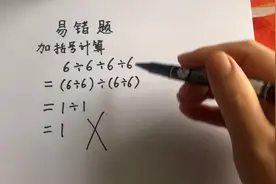 易错题
加括号计算
6÷6÷6÷6
=(6÷6)÷(6÷6)
=1÷1
=1